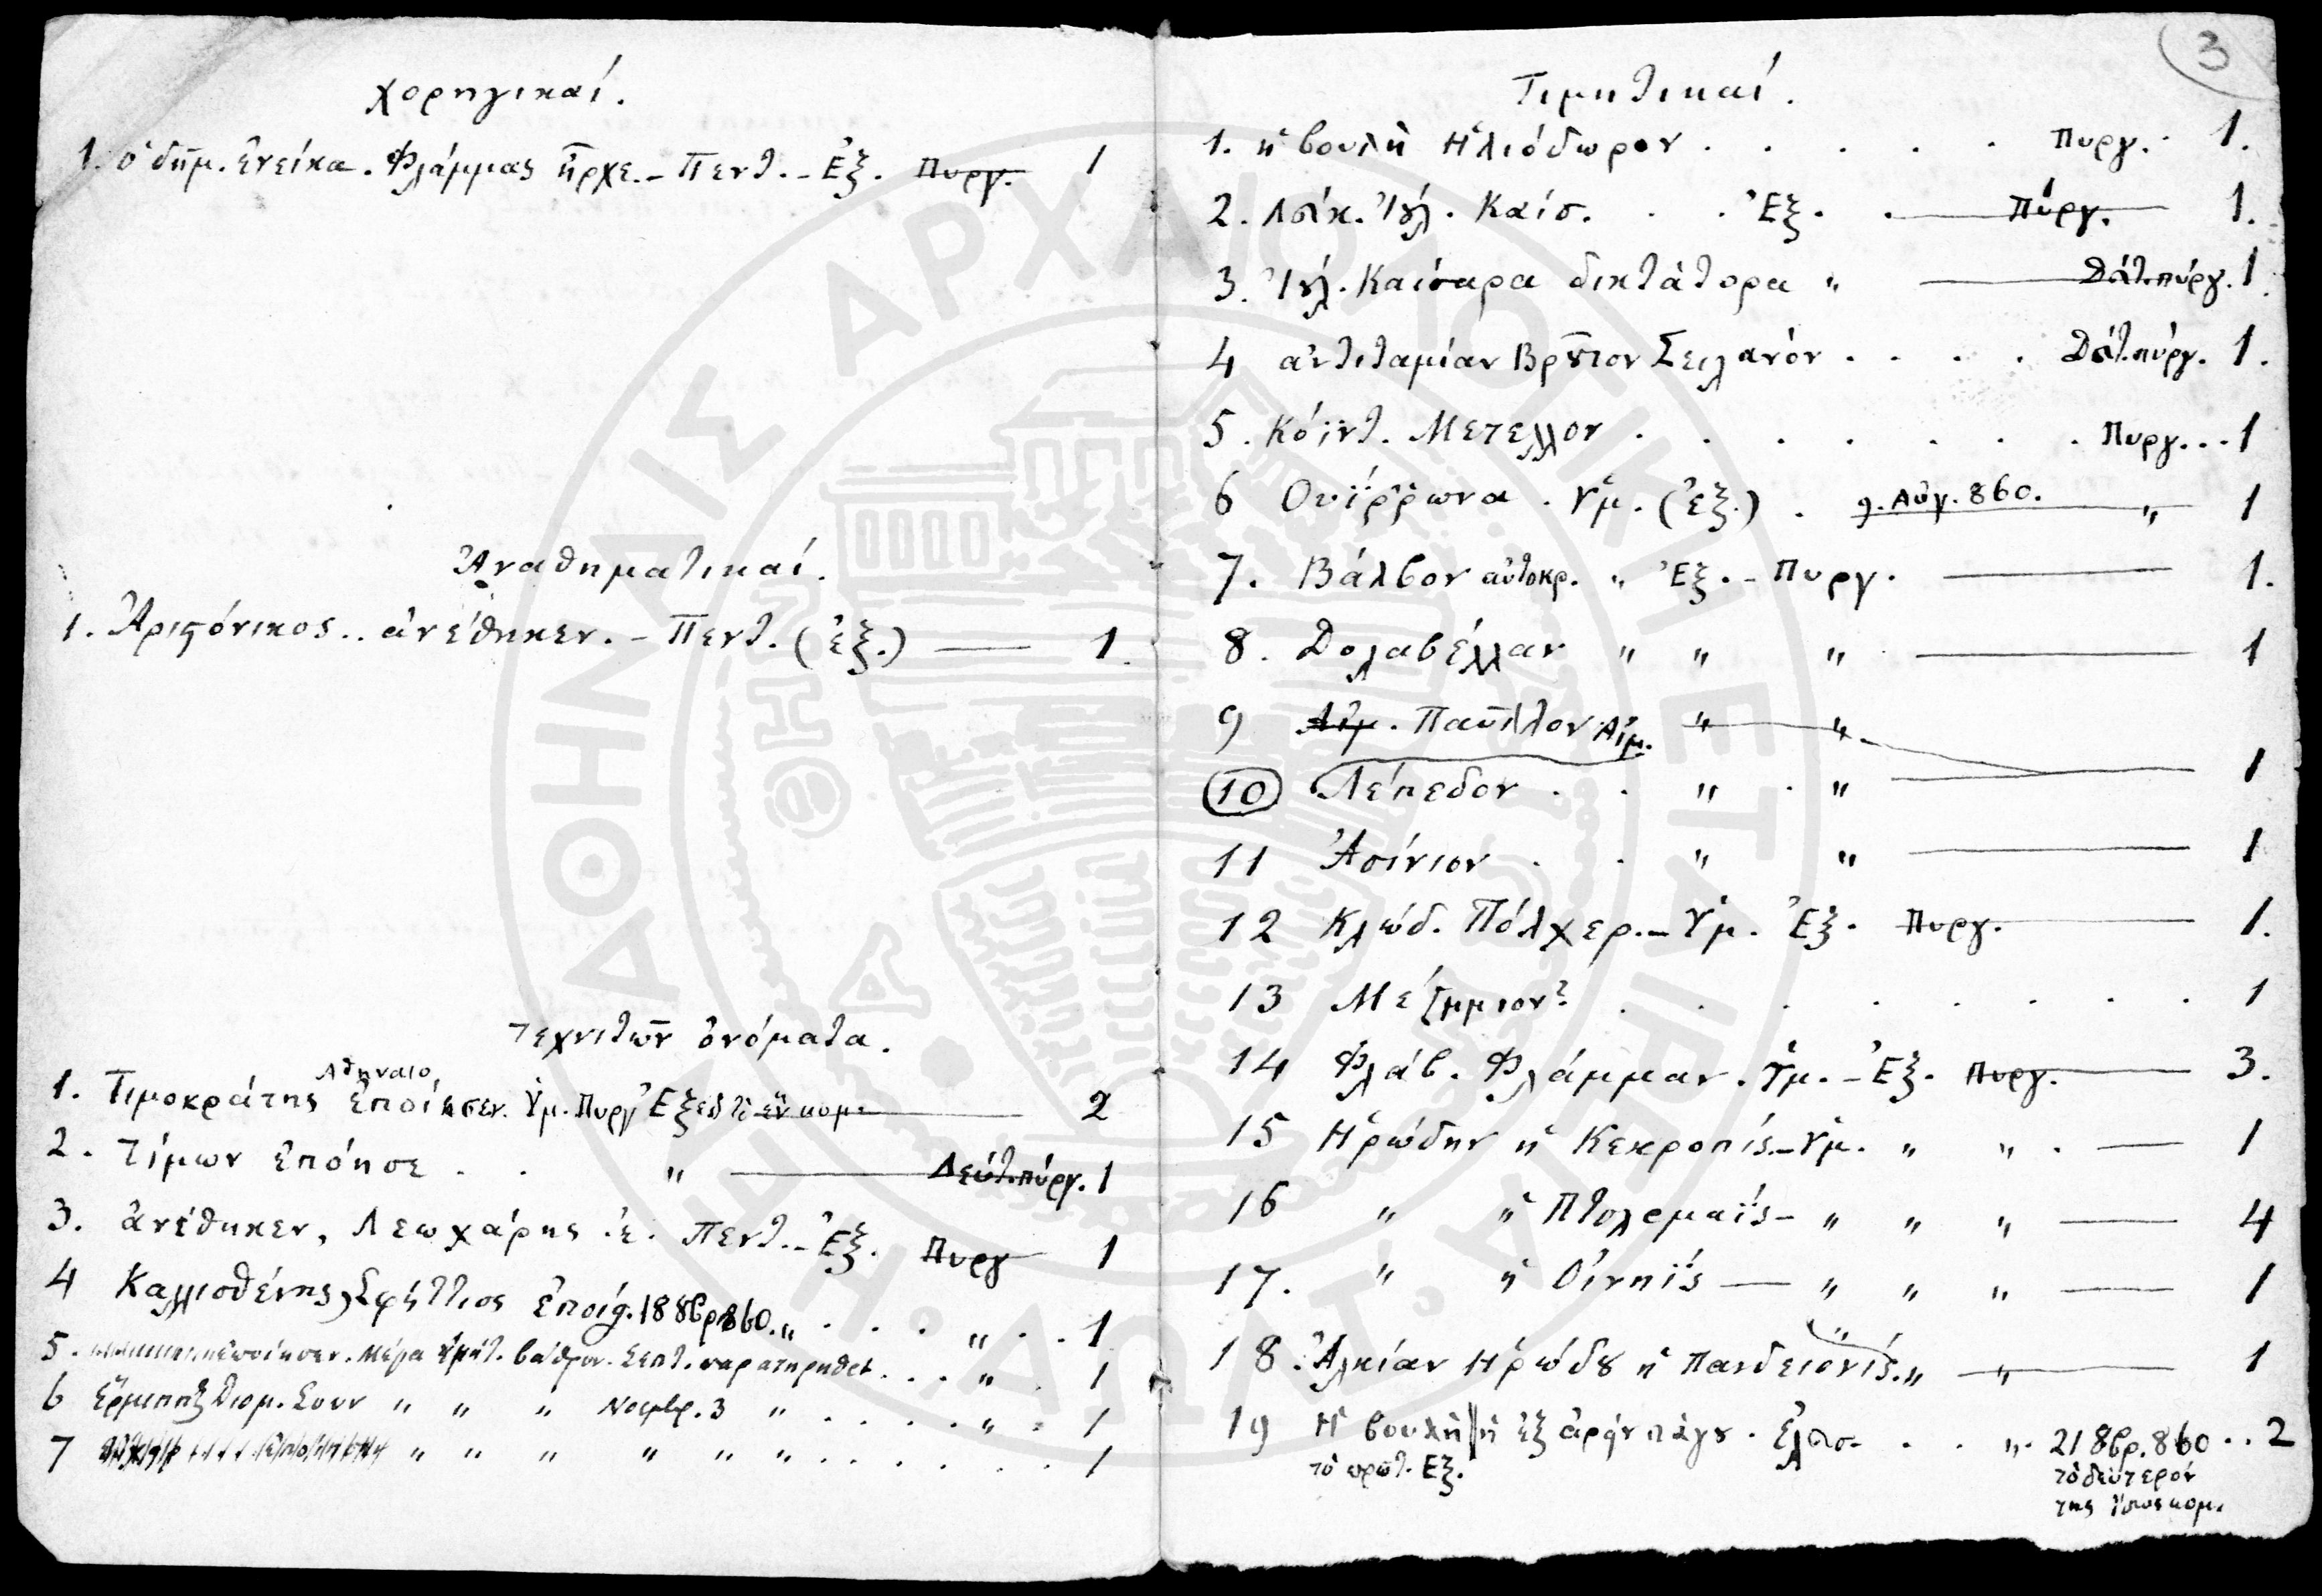 χορηγικαί.
1. ὁ δῆμ. ἐνείκα. Φλάμμας ἦρχε. – Πεντ. – Ἐξ. Πυργ. 1
Ἀναθηματικαί.
1. Ἀριϛόνικος.. ἀνέθηκεν. – Πεντ. (ἐξ.) — 1.
Τεχνιτῶν ὀνόματα.
Αθηναιο
1. Τιμοκράτης ἐποίησεν. Ὑμ. Πυργ Ἐξ 2
2. Τίμων ἐπόησε . . " — Δεύτ. πύργ. 1
3. ἀνέθηκεν, Λεωχάρης ἐ. Πεντ. – Ἐξ. Πυργ 1
4 Καλλισθένης Σφήττιος ἐποίη. 18 8βρ 860. " . . . " . . 1
5. ἐποίησεν. Μέγα Ὑμήτ. βάθρον. Σεπτ. . . . " . 1
6 Διομ. Σουν " " " Νοεμβρ. 3 " . . . . . " . 1
7 " " " " " " . . . . . . 1
3
Τιμητικαί.
1. ἡ βουλὴ Ἡλιόδωρον . . . . . Πυργ. . 1.
2. Λούκ. Ἰȣλ. Καίσ. . . Ἐξ. . — Πύργ. 1.
3. Ἰȣλ. Καίσαρα δικτάτορα " — Δάτ. πύργ. 1.
4 ἀντιταμίαν Βρȣ͂τον Σειλανόν . . . . Δάτ. πύργ. 1.
5. Κόϊντ. Μετελλον . . . . . . . Πυργ. . . 1
6 Ουΐῤῥωνα . Ὑμ. (ἐξ.) . 9. Αὐγ. 860. " 1
7. Βάλβον αὐτοκρ. " Ἐξ. – Πυργ. — 1.
8. Δολαβέλλαν " " " — 1
9 Αἰμ. Παῦλλον Αἰμ. " "
10 Λέπεδον . . " . " — 1
11 Ἀσίνιον . . " " — 1
12 Κλώδ. Πόλχερ. – Ὑμ. Ἐξ. Πυργ. — 1.
13 Μέμμιον? . . . . . . . . 1
14 Φλάβ. Φλάμμαν. Ὑμ. – Ἐξ. Πυργ. — 3.
15 Ἡρώδην ἡ Κεκροπίς – Ὑμ. " " . — 1
16 " ἡ Πτολεμαΐς – " " " — 4
17. " ἡ Οἰνηΐς — " " " — 1
18. Ἀλκίαν Ἡρώδȣ ἡ Πανδειονίς. " — " — 1
19 Ἡ βουλὴ ἡ ἐξ ἀρήν πάγȣ . . . " . 21 8βρ. 860 . . 2
τὸ πρῶτ. Εξ. τὸ δεύτερον
της